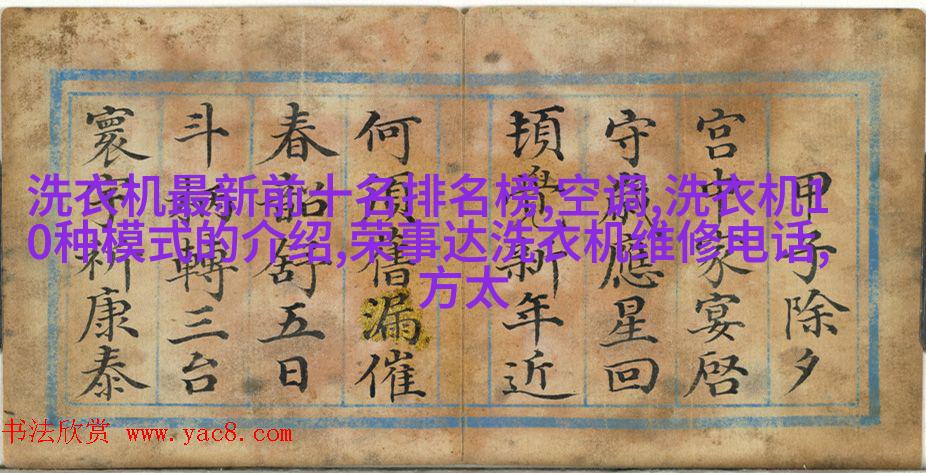 甲子除夕
宮中家宴啓
守歲應星回
頓覺新年近
何須舊漏催
春韶舒五日
斗柄轉三台
寰宇祈康泰
洗衣机最新前十名排名榜,空调,洗衣机1
0种模式的介绍,荣事达洗衣机维修电话,
方太
书法欣赏 www.yac8.com